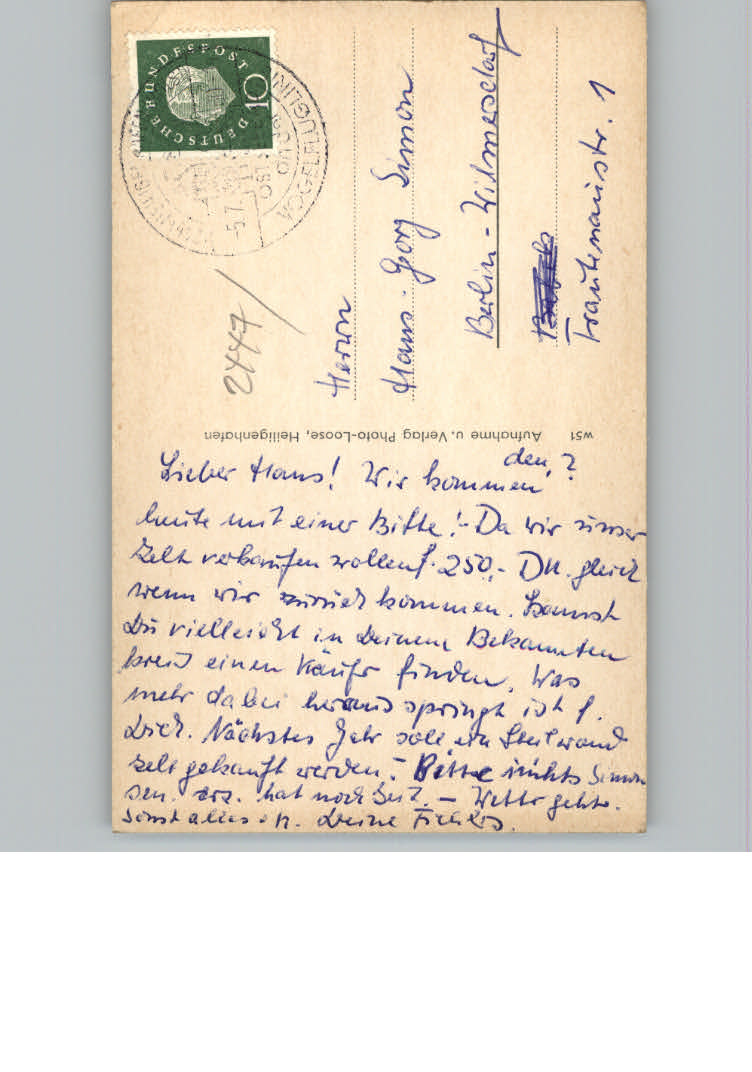 DEUTSCHE BUNDESPOST
10
VOGELFLUGLINIE
-5.7.
2447
Herrn
Hans-Georg Simon
Berlin-Wilmersdorf
Trautenaustr. 1
W51 Aufnahme u. Verlag Photo-Loose, Heiligenhafen
den, ?
Lieber Hans! Wir kommen
heute mit einer Bitte!- Da wir unser
Zelt verkaufen wollen f. 250,- DM. gleich
wenn wir zurück kommen. Kannst
Du vielleicht in Deinem Bekannten
kreis einen Käufer finden. Was
mehr dabei heraus springt ist f.
Dich. Nächstes Jahr soll ein Steilwand
zelt gekauft werden.- Bitte nichts Simon
sen. hat noch Zeit. - Wetter geht.
sonst alles Deine